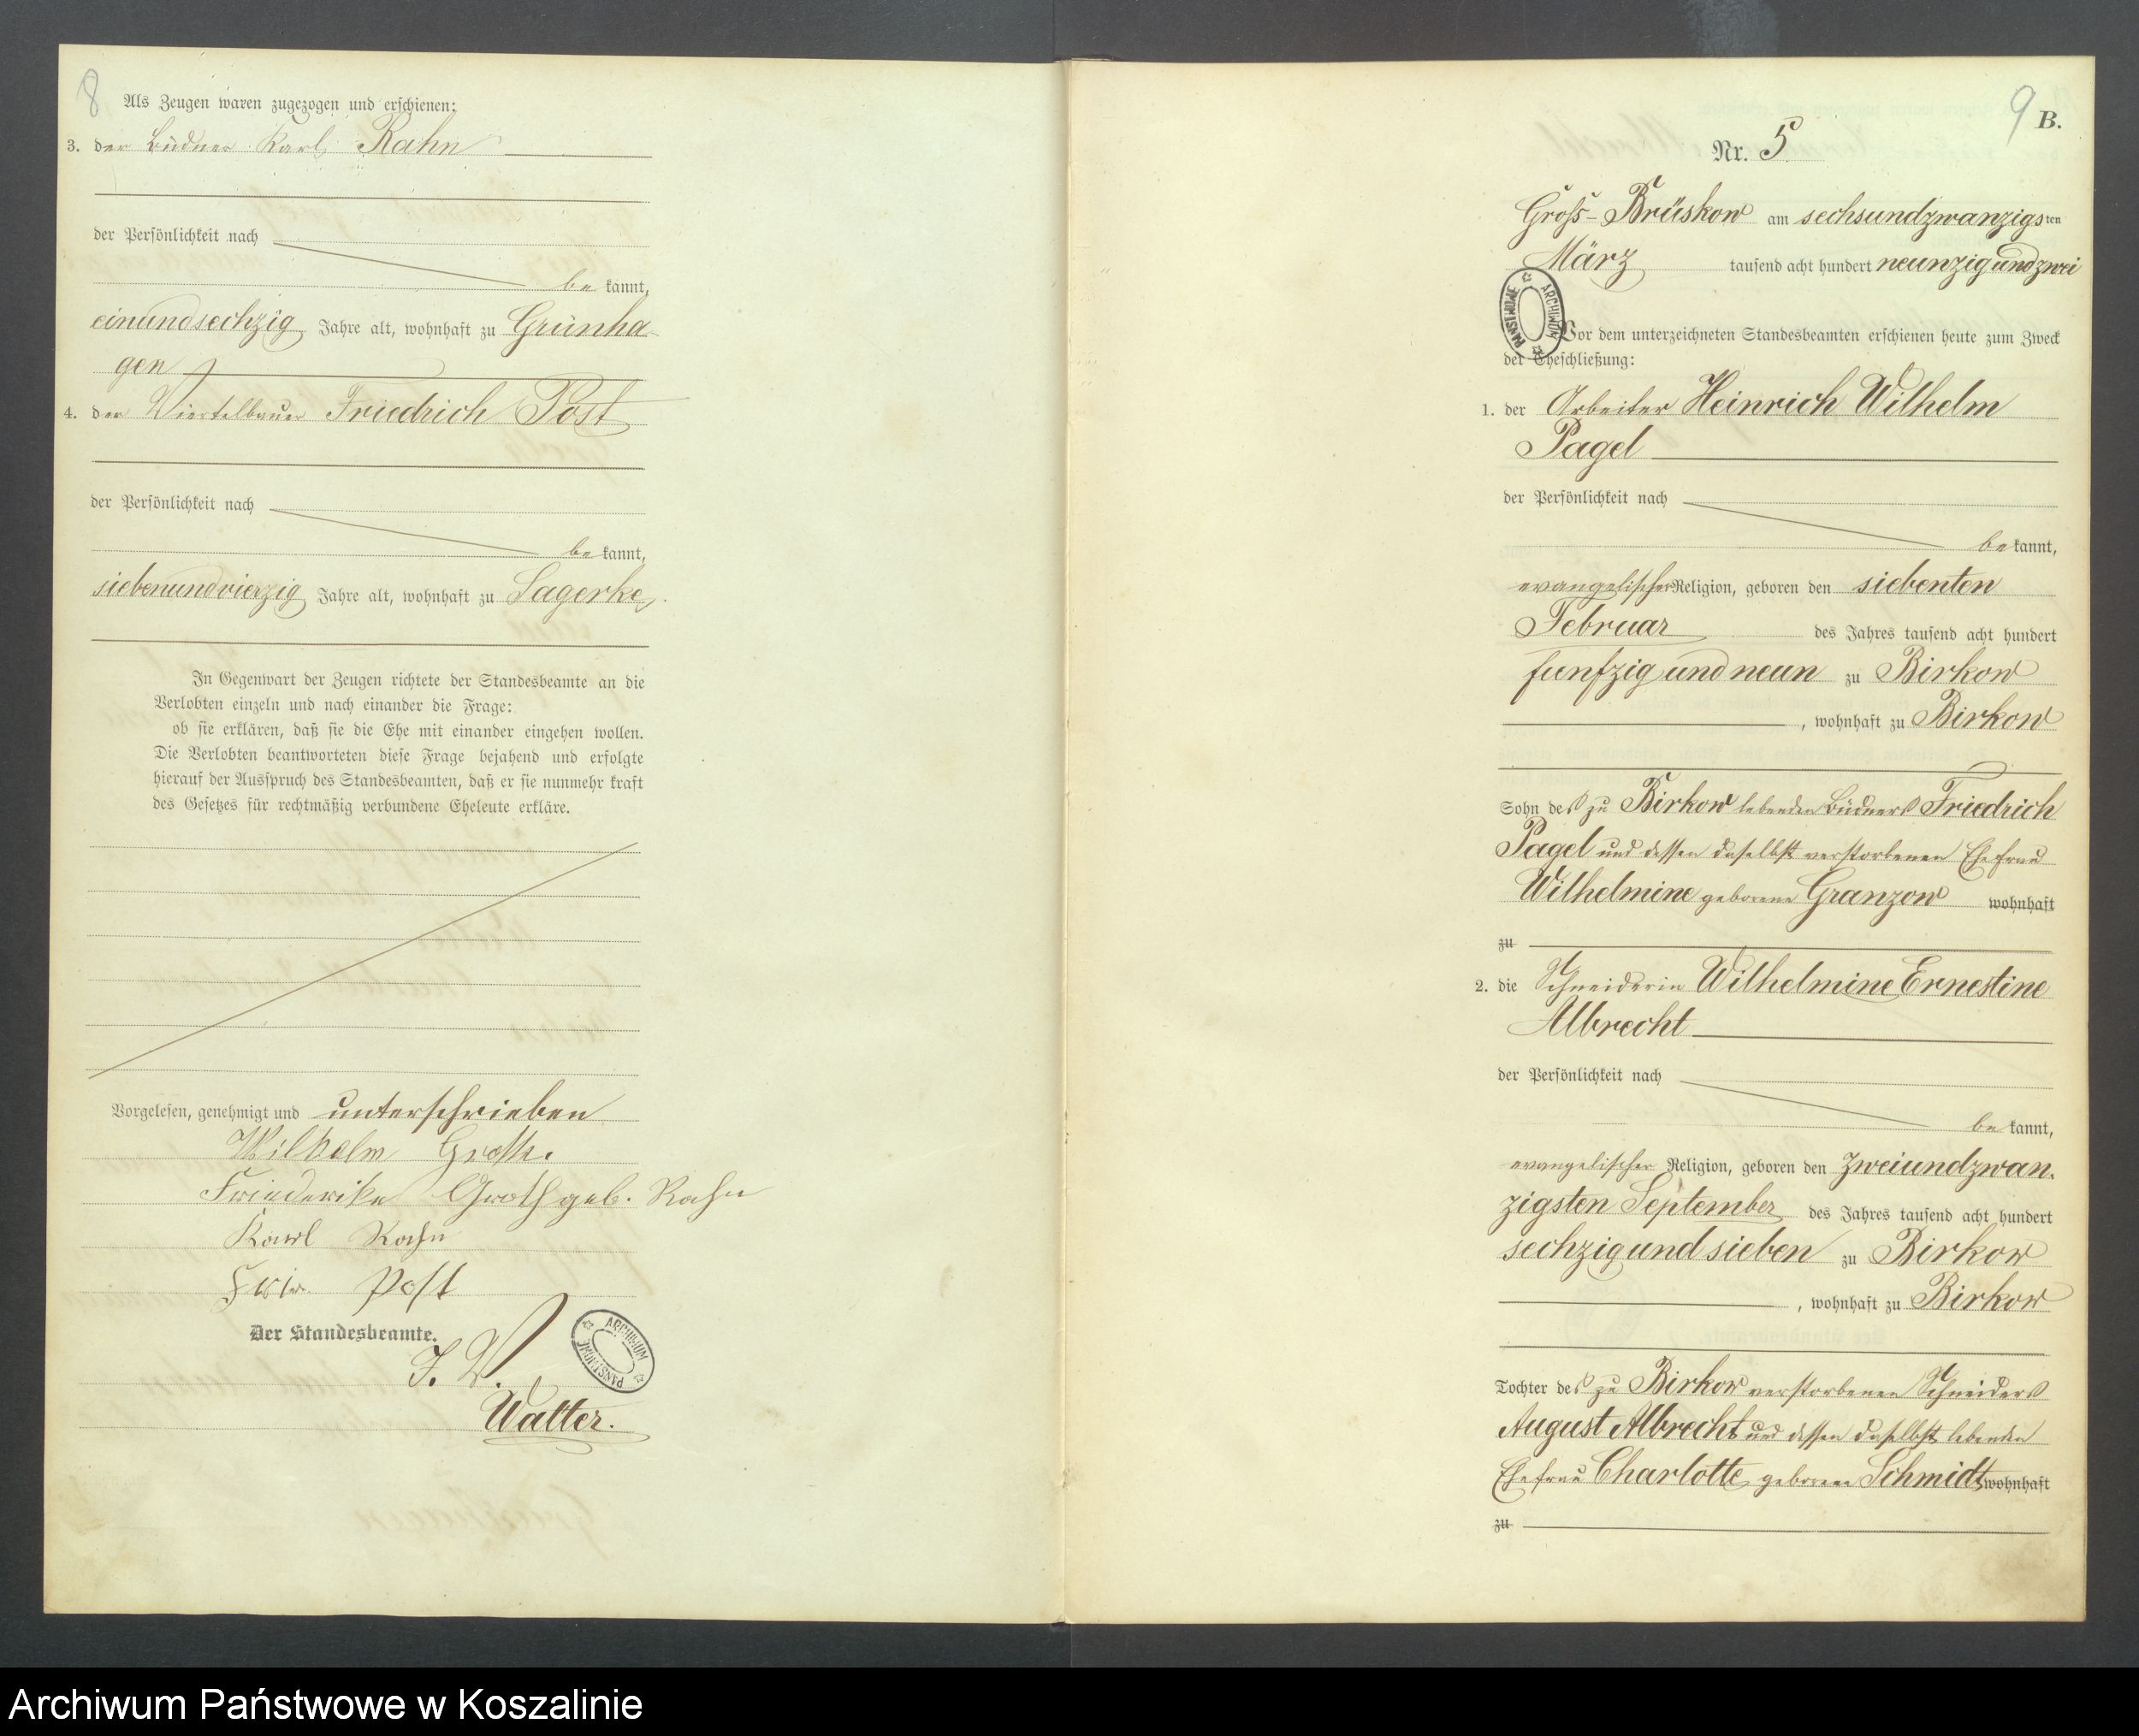 8
Als Zeugen waren zugezogen und erschienen:
3. der Büdner Karl Rahn
der Persönlichkeit nach
be kannt,
einundsechzig Jahre alt, wohnhaft zu Grünha
gen
4. der Viertelbauer Friedrich Post
der Persönlichkeit nach
be kannt,
siebenundvierzig Jahre alt, wohnhaft zu Sagerke,
In Gegenwart der Zeugen richtete der Standesbeamte an die
Verlobten einzeln und nach einander die Frage:
ob sie erklären, daß sie die Ehe mit einander eingehen wollen.
Die Verlobten beantworteten diese Frage bejahend und erfolgte
hierauf der Ausspruch des Standesbeamten, daß er sie nunmehr kraft
des Gesetzes für rechtmäßig verbundene Eheleute erkläre.
Vorgelesen, genehmigt und unterschrieben
Wilhelm Groth.
Friederike Groth geb. Rahn
Karl Rahn
Post
Der Standesbeamte.
J. V.
Walter.
ARCHIWUM PAŃSTWOWE
9
B.
Nr. 5
Gross-Brüskow am sechsundzwanzigs ten
März tausend acht hundert neunzig und zwei
ARCHIWUM PAŃSTWOWE
Vor dem unterzeichneten Standesbeamten erschienen heute zum Zweck
der Eheschließung:
1. der Arbeiter Heinrich Wilhelm
Pagel
der Persönlichkeit nach
be kannt,
evangelischer Religion, geboren den siebenten
Februar des Jahres tausend acht hundert
funfzig und neun zu Birkow
, wohnhaft zu Birkow
Sohn des zu Birkow lebenden Büdners Friedrich
Pagel und dessen daselbst verstorbenen Ehefrau
Wilhelmine geborene Granzow wohnhaft
zu
2. die Schneiderin Wilhelmine Ernestine
Albrecht
der Persönlichkeit nach
be kannt,
evangelischer Religion, geboren den zweiundzwan-
zigsten September des Jahres tausend acht hundert
sechzig und sieben zu Birkow
, wohnhaft zu Birkow
Tochter des zu Birkow verstorbenen Schneiders
August Albrecht und dessen daselbst lebenden
Ehefrau Charlotte geborene Schmidt wohnhaft
zu
Archiwum Państwowe w Koszalinie